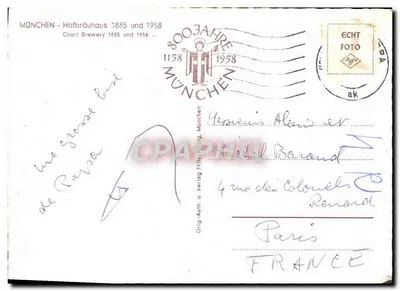 MÜNCHEN - Hofbräuhaus 1885 und 1958
Court Brewery 1885 and 1958
800 JAHRE
1158 1958
MÜNCHEN
ECHT
FOTO
ak
CPAPHIL
une grosse bise
de Papa
Messieurs Alexis et
Barand
4 rue des Colonels
Renard
Paris
FRANCE